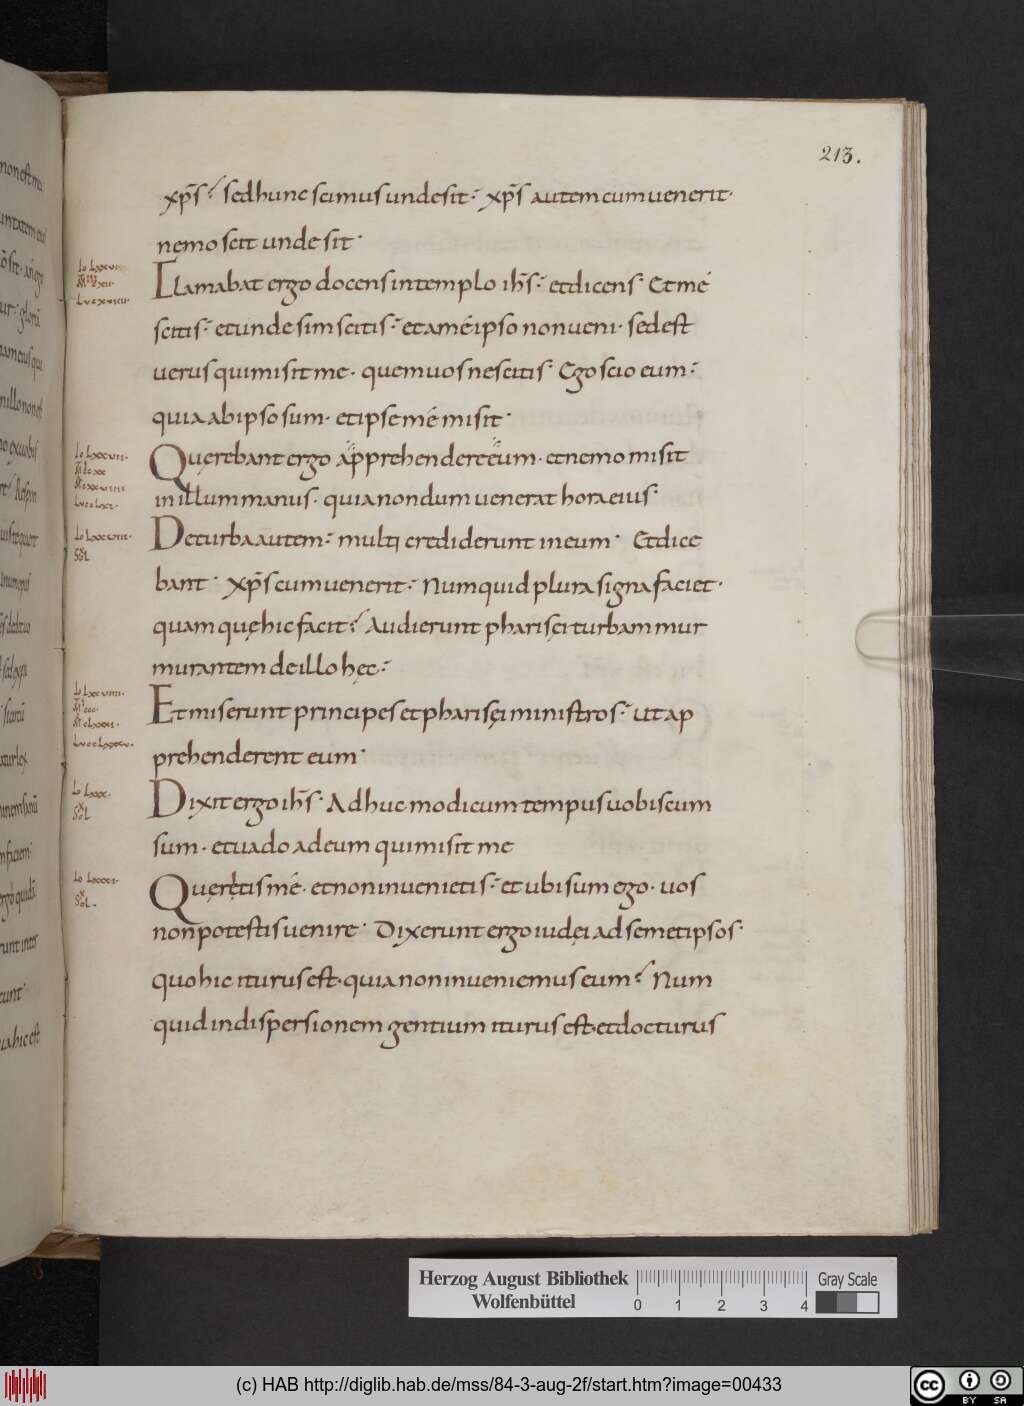 213.
xp̄s? sed hunc scimus unde sit: xp̄s autem cum uenerit·
nemo scit unde sit·
Io Lxxvi
Clamabat ergo docens in templo ih̄s: et dicens· Et mé
scitis: et unde sim scitis: et a mé ipso non ueni· sed est
uerus qui misit me· quem uos nescitis· Ego scio eum:
quia ab ipso sum· et ipse mé misit·
Io Lxxvii·
Quęrebant ergo apprehendere eum· et nemo misit
in illum manus· quia nondum uenerat hora eius·
Io Lxxviii·
De turba autem: multi crediderunt in eum· Et dice
SOL
bant· Xp̄s cum uenerit: Numquid plura signa faciet·
quam quę hic facit? Audierunt pharisęi turbam mur
murantem de illo hęc:
Io Lxxviiii·
Et miserunt principes et pharisęi ministros: ut ap
prehenderent eum·
Io Lxxx·
Dixit ergo ih̄s· Adhuc modicum tempus uobiscum
SOL
sum· et uado ad eum qui misit me
Io Lxxxi·
Quęretis mé· et non inuenietis: et ubi sum ego· uos
SOL·
non potestis uenire· Dixerunt ergo iudęi ad semetipsos·
quo hic iturus est· quia non inueniemus eum? Num
quid in dispersionem gentium iturus est· et docturus
Herzog August Bibliothek
Wolfenbüttel
0 1 2 3 4
Gray Scale
(c) HAB http://diglib.hab.de/mss/84-3-aug-2f/start.htm?image=00433
cc BY SA